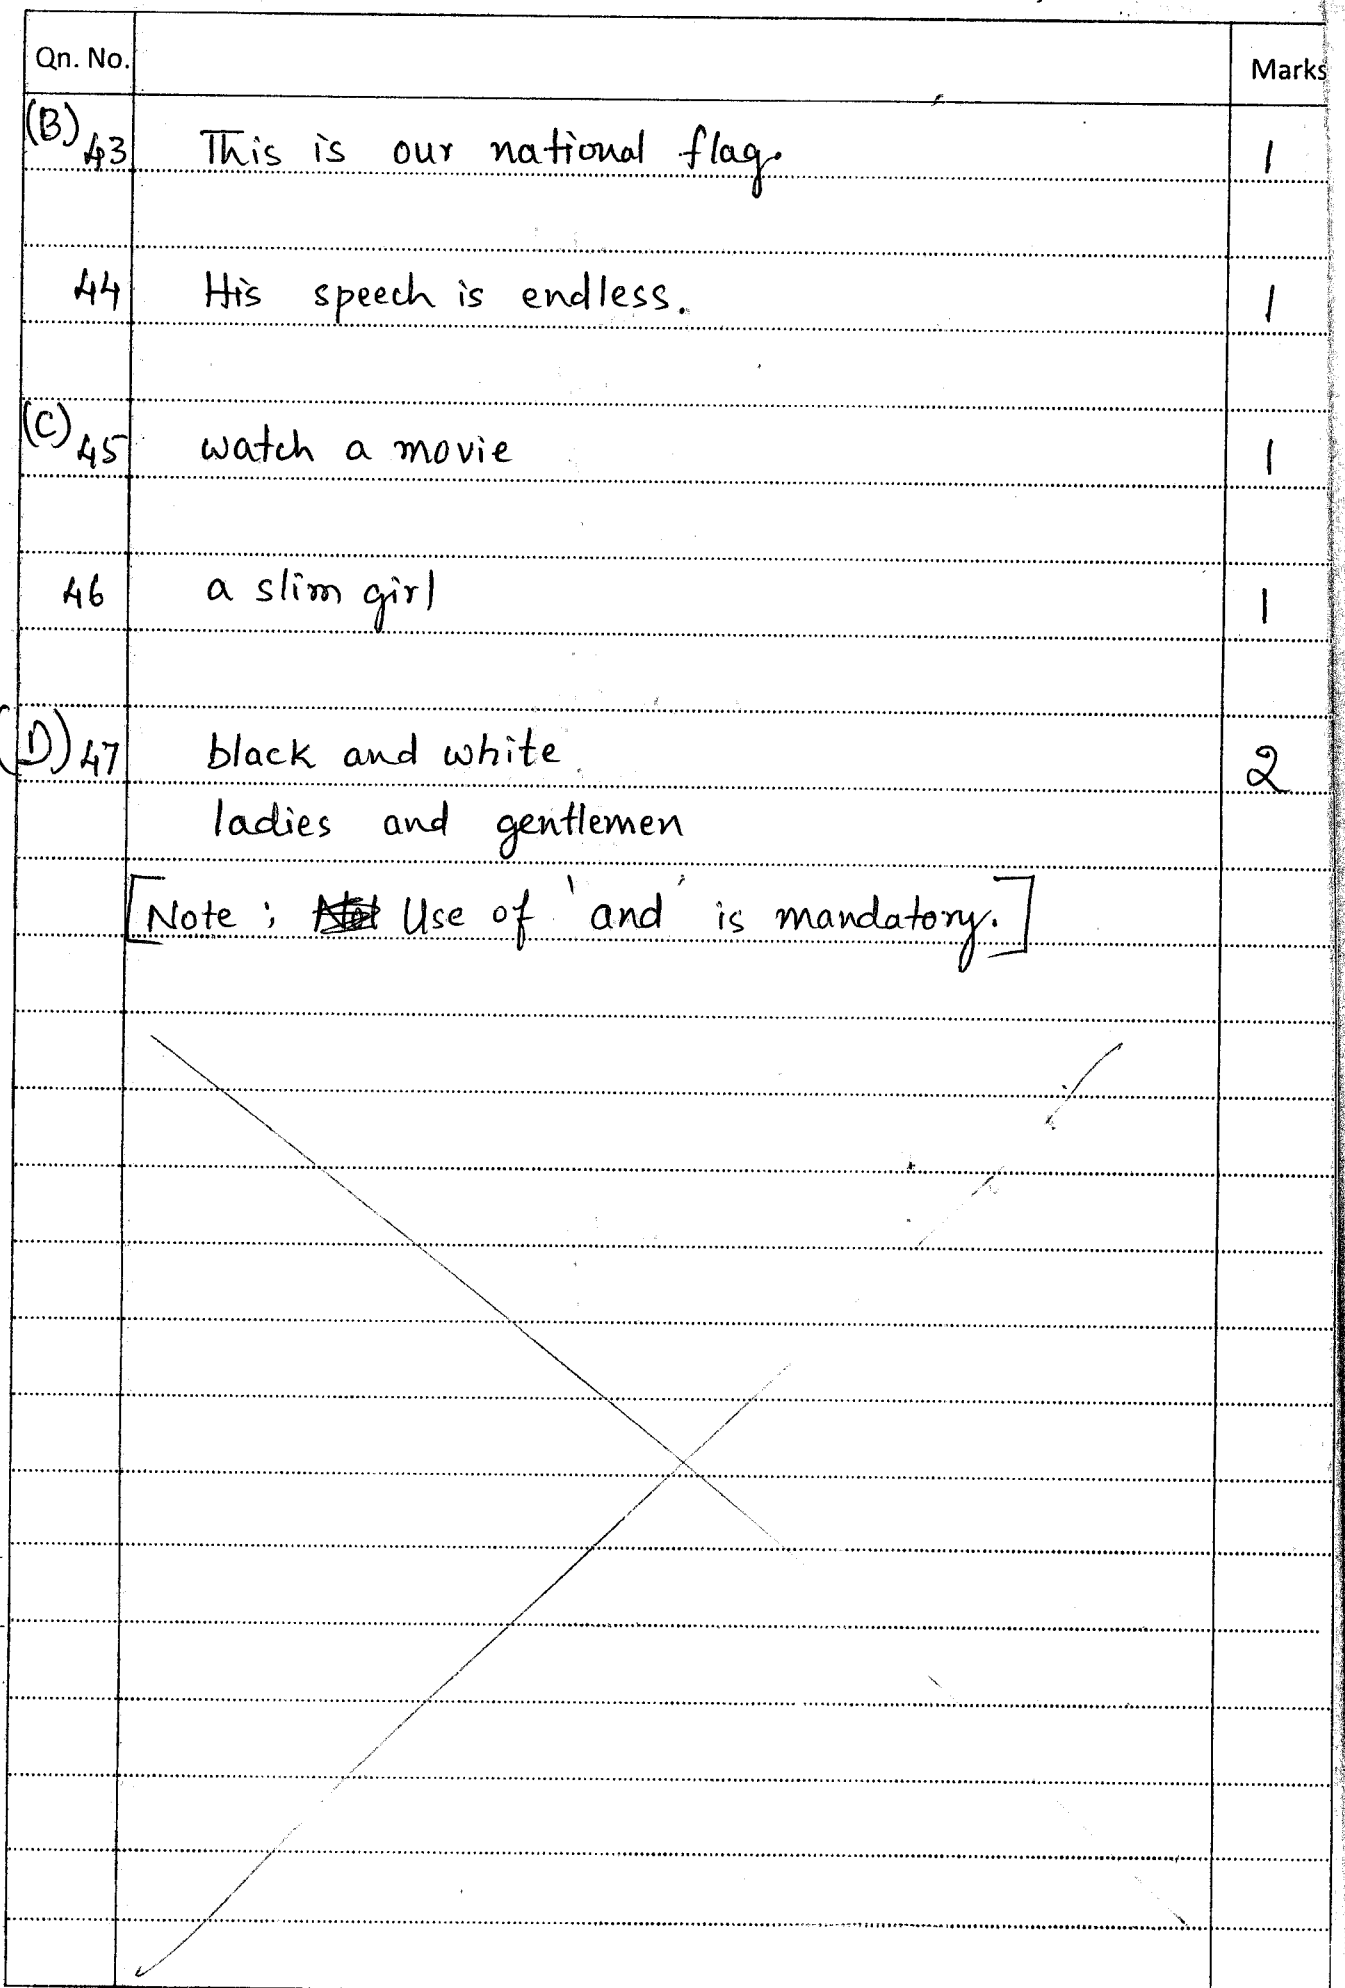 Qn. No. Marks
(B) 43 This is our national flag. 1
44 His speech is endless. 1
(C) 45 watch a movie 1
46 a slim girl 1
(D) 47 black and white 2
ladies and gentlemen
[Note : Use of 'and' is mandatory.]